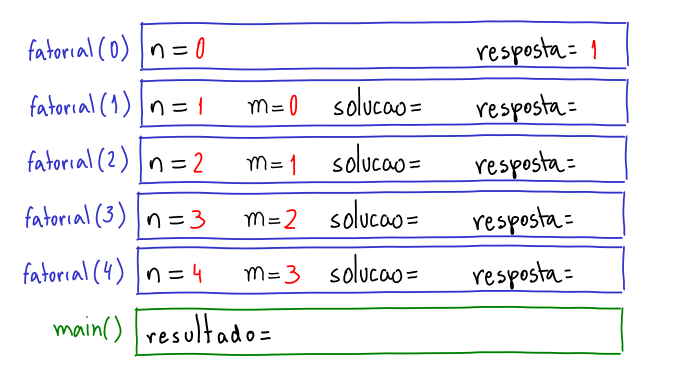 fatorial(0) n = 0 resposta= 1
fatorial(1) n = 1 m=0 solucao= resposta=
fatorial(2) n = 2 m=1 solucao= resposta=
fatorial(3) n = 3 m=2 solucao= resposta=
fatorial(4) n = 4 m=3 solucao= resposta=
main() resultado=